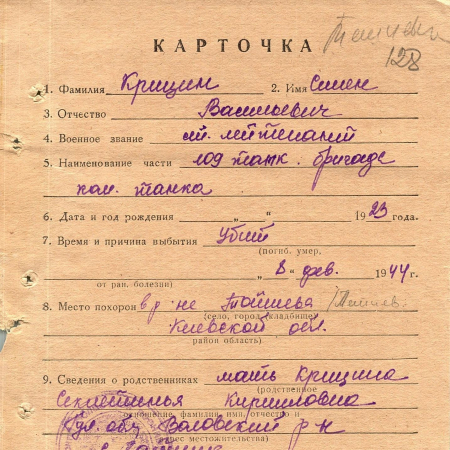 128
КАРТОЧКА
1. Фамилия Крицин 2. Имя Семен
3. Отчество Васильевич
4. Военное звание мл. лейтенант
5. Наименование части 109 танк. бригаде
ком. танка
6. Дата и год рождения „ “ 1923 года.
7. Время и причина выбытия Убит
(погиб. умер,
от ран. болезни) „8“ фев. 1944 г.
8. Место похорон в р-не
(село, город, кладбище,
Киевской обл.
район область)
9. Сведения о родственниках мать Крицина
(родственное
Кирилловна
отношение, фамилия, имя, отчество и
обл. Воловский р-н
адрес местожительства)